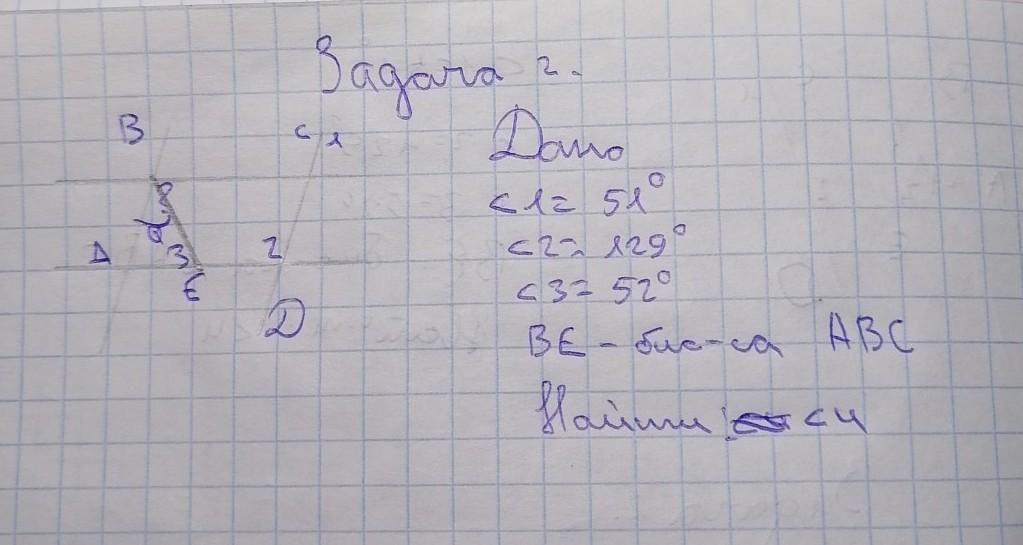 Задача 2.
B
C 1
Дано
<1 = 51°
A
3
2
<2 = 129°
E
<3 = 52°
D
BE - бис-са ABC
Найти <4